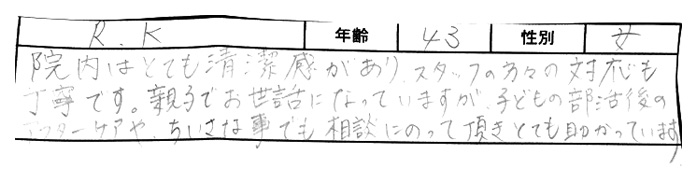 R.K 年齢 43 性別 女
院内はとても清潔感があり、スタッフの方々の対応も
丁寧です。親子でお世話になっていますが、子どもの部活後の
アフターケアや、ちいさな事でも相談にのって頂きとても助かっています